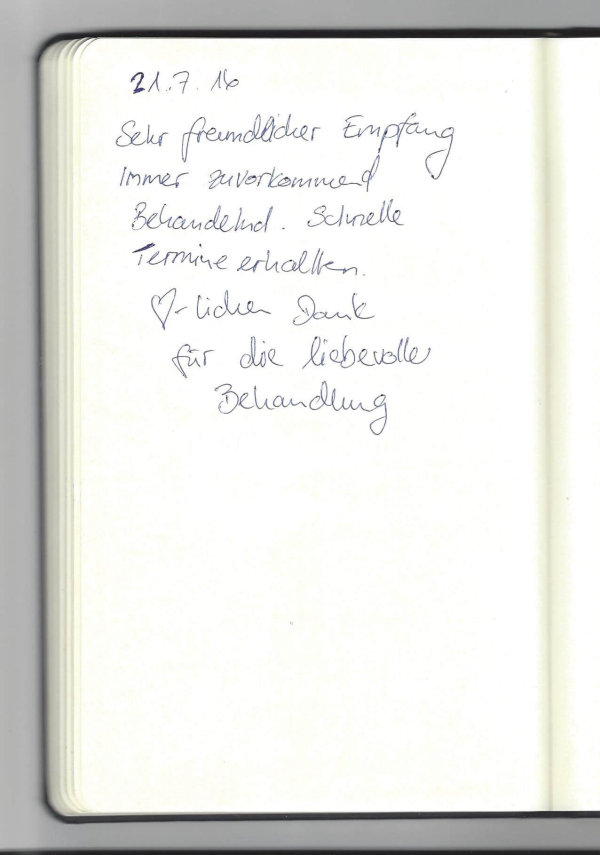 21.7.16
Sehr freundlicher Empfang
Immer zuvorkommend
Behandelnd. Schnelle
Termine erhalten.
♡-lichen Dank
für die liebevolle
Behandlung